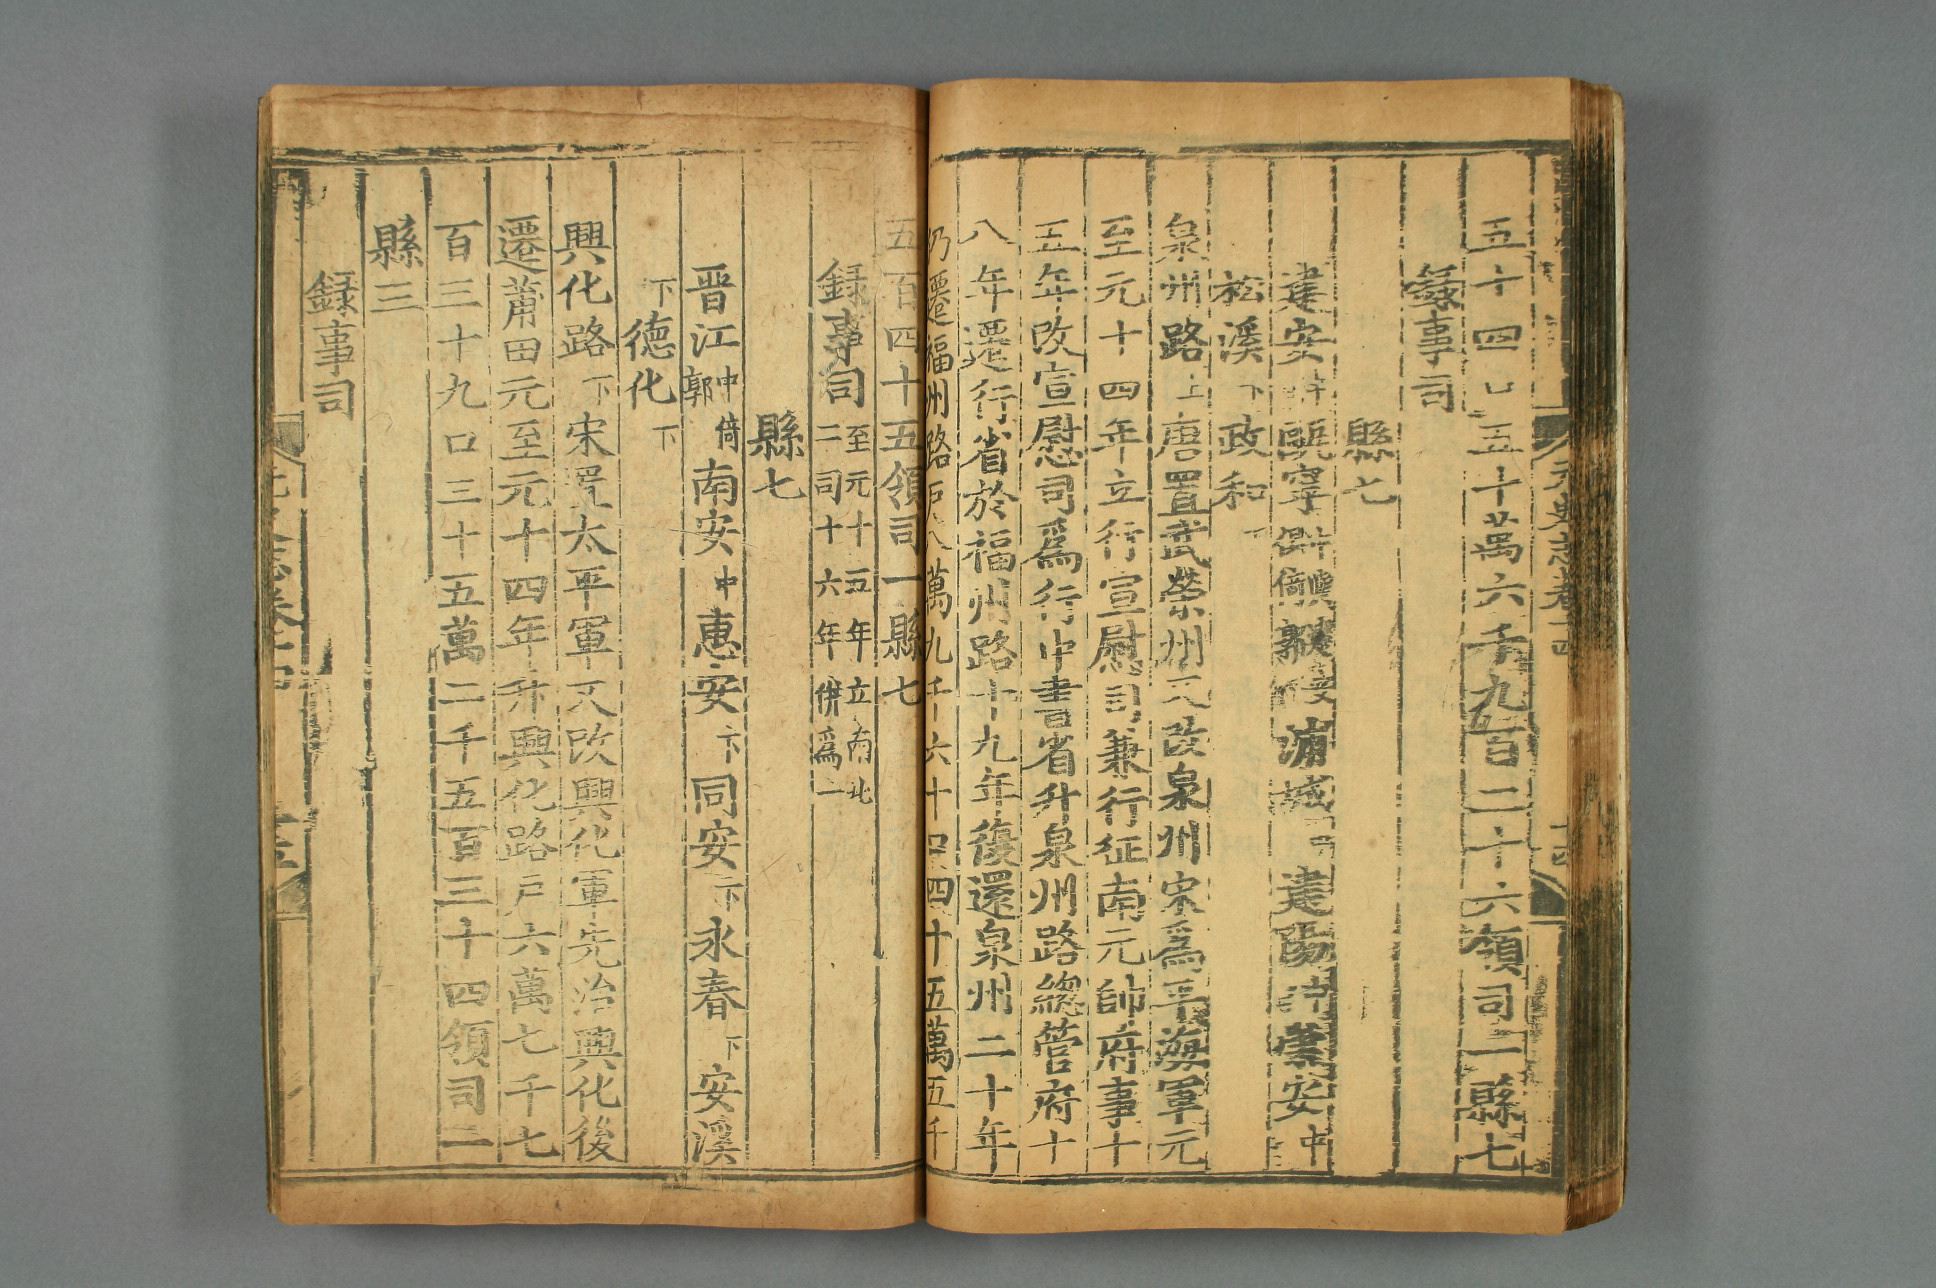 五十四口五十萬六千九百二十六領司一縣七
錄事司
縣七
建安 甌寧 浦城 建陽中崇安中
松溪下政和下
泉州路上唐置武榮州又改泉州宋爲平海軍元
至元十四年立行宣慰司兼行征南元帥府事十
五年改宣慰司爲行中書省升泉州路總管府十
八年遷行省於福州路十九年復還泉州二十年
仍遷福州路戶八萬九千六十口四十五萬五千
五百四十五領司一縣七
錄事司至元十五年立南北二司十六年併爲一
縣七
晋江中倚郭南安中惠安下同安下永春下安溪
下德化下
興化路下宋置太平軍又改興化軍先治興化後
遷莆田元至元十四年升興化路戶六萬七千七
百三十九口三十五萬二千五百三十四領司一
縣三
録事司